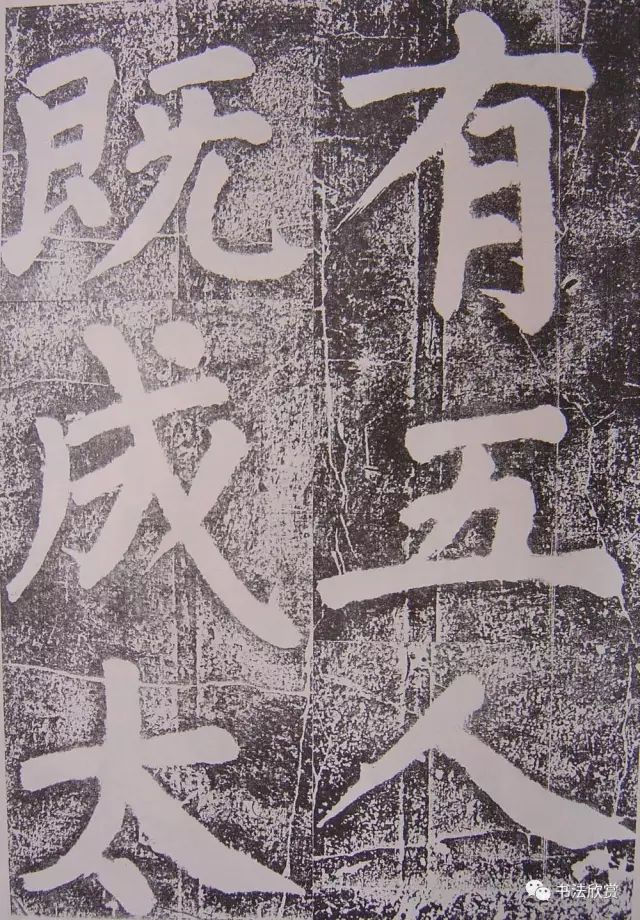 有五人
既成太
书法欣赏